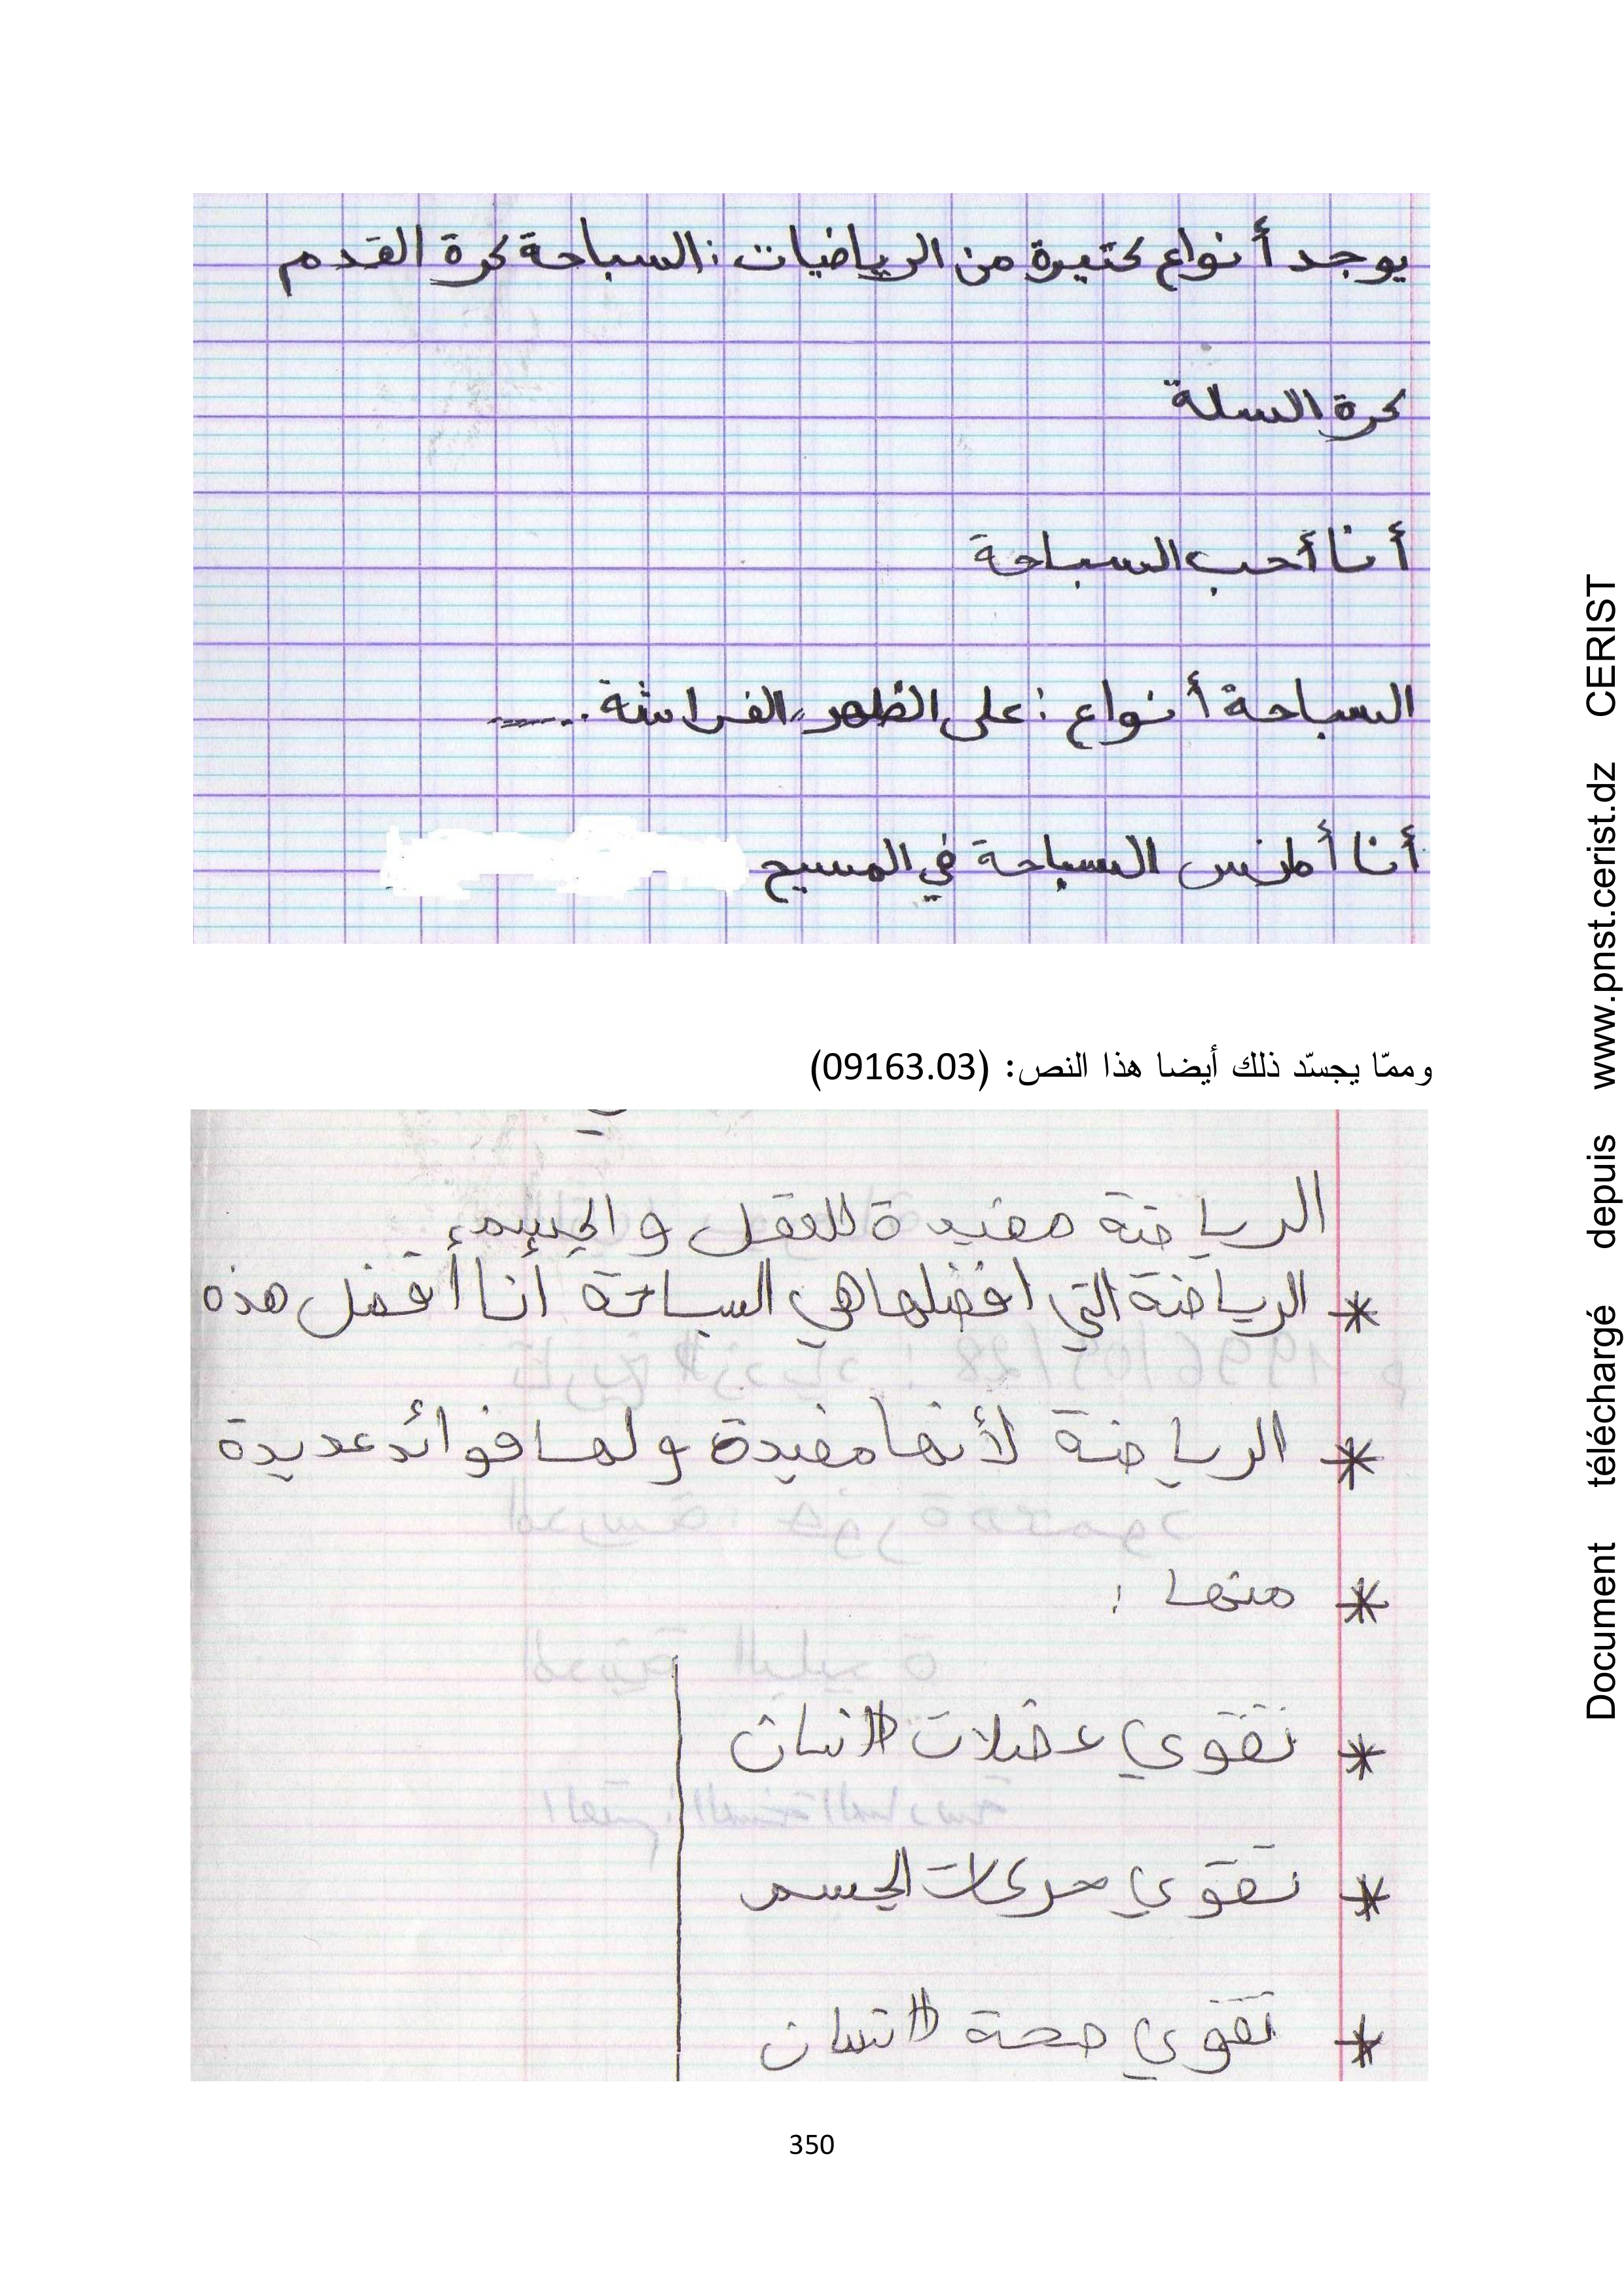 يوجد أنواع كتيرة من الرياضيات : السباحة كرة القدم
كرة السلة
أنا أحب السباحة
السباحة أنواع : على الظهر، الفراشة . . ....
أنا أمارس السباحة في المسبح
وممّا يجسّد ذلك أيضا هذا النص: (09163.03)
الرياضة مفيدة للعقل و الجسم،
* الرياضة التي افضلها هي السباحة أنا أفضل هذه
* الرياضة لأنها مفيدة و لها فوائد عديدة
* منها :
* تقوي عضلات الانسان
* تقوي حركات الجسم
* تقوي صحة الانسان
350
Document téléchargé depuis www.pnst.cerist.dz CERIST